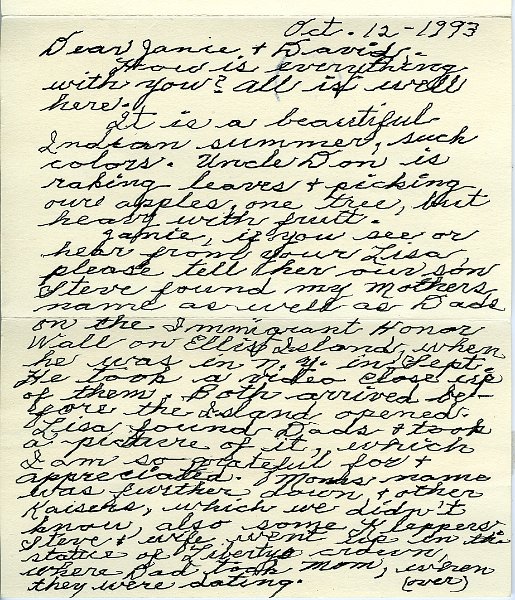 Oct. 12-1993
Dear Janie & David,
How is everything
with you? All is well
here.
It is a beautiful
Indian summer, such
colors. Uncle Don is
raking leaves & picking
our apples, one tree, but
heavy with fruit.
Janie, if you see or
hear from your Lisa,
please tell her our son
Steve found my Mothers
name as well as Dads
on the Immigrant Honor
Wall on Ellis Island, when
he was in N.Y. in Sept.
He took a video close up
of them. Both arrived be-
fore the island opened.
Lisa found Dads & took
a picture of it, which
I am so grateful for &
appreciated. Moms name
was further down & other
Kaisers, which we didn't
know, also some Kleppers.
Steve & wife went up in the
statue of Liberty's crown,
where Dad took Mom, when
they were dating. (over)